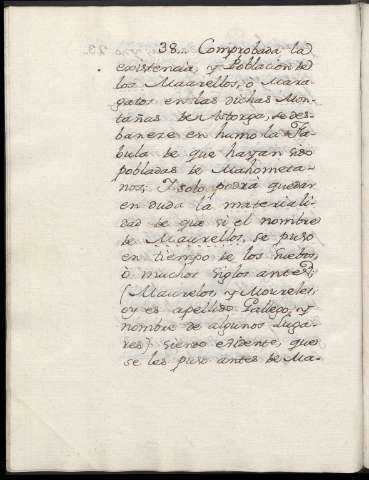 38... Comprobada la
existencia, y Poblacion de
los Maurellos, ò Mara-
gatos en las dichas Mon-
tañas de Astorga, se des-
banece en humo la Fa-
bula de que hayan sido
pobladas de Mahometa-
nos; Y solo podrà quedar
en duda la materiali-
dad de que si el nombre
de Maurellos, se puso
en tiempo de los Suebos,
ò muchos siglos antes
(Maurelos, y Moureles,
oy es apellido Gallego, y
nombre de algunos Luga-
res) siendo evidente, que
se les puso antes de Ma-